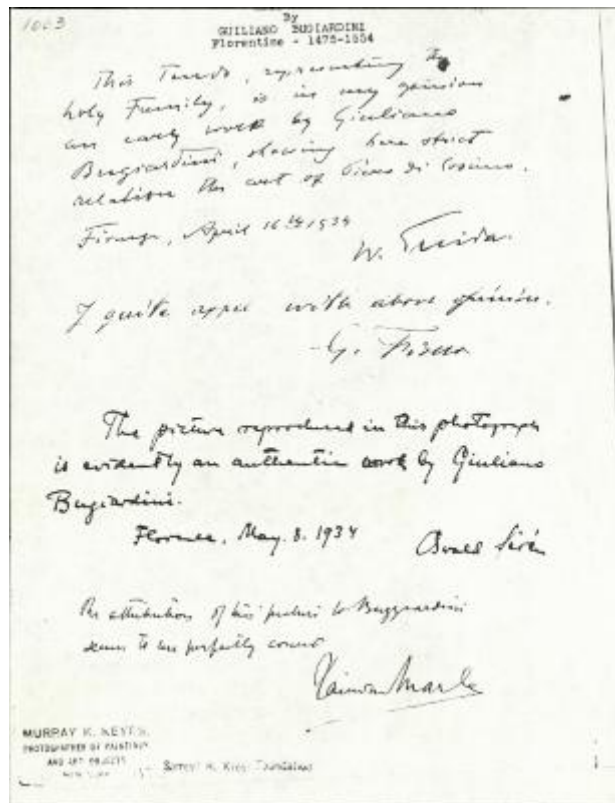 1003
By
GUILIANO BUGIARDINI
Florentine - 1475-1554
This Tondo, representing the
holy Family, is in my opinion
an early work by Giuliano
Bugiardini, showing here strict
relation the art of Piero di Cosimo.
Firenze, April 16th 1934
W.
I quite agree with above opinion.
G. Fiocco
The picture reproduced in this photograph
is evidently an authentic work by Giuliano
Bugiardini.
Florence, May. 8. 1934
Osvald Sirén
The attribution of this picture to Buggiardini
seems to me perfectly correct
MURRAY K. KEYES
PHOTOGRAPHER OF PAINTINGS
AND ART OBJECTS
NEW YORK
Samuel H. Kress Foundation